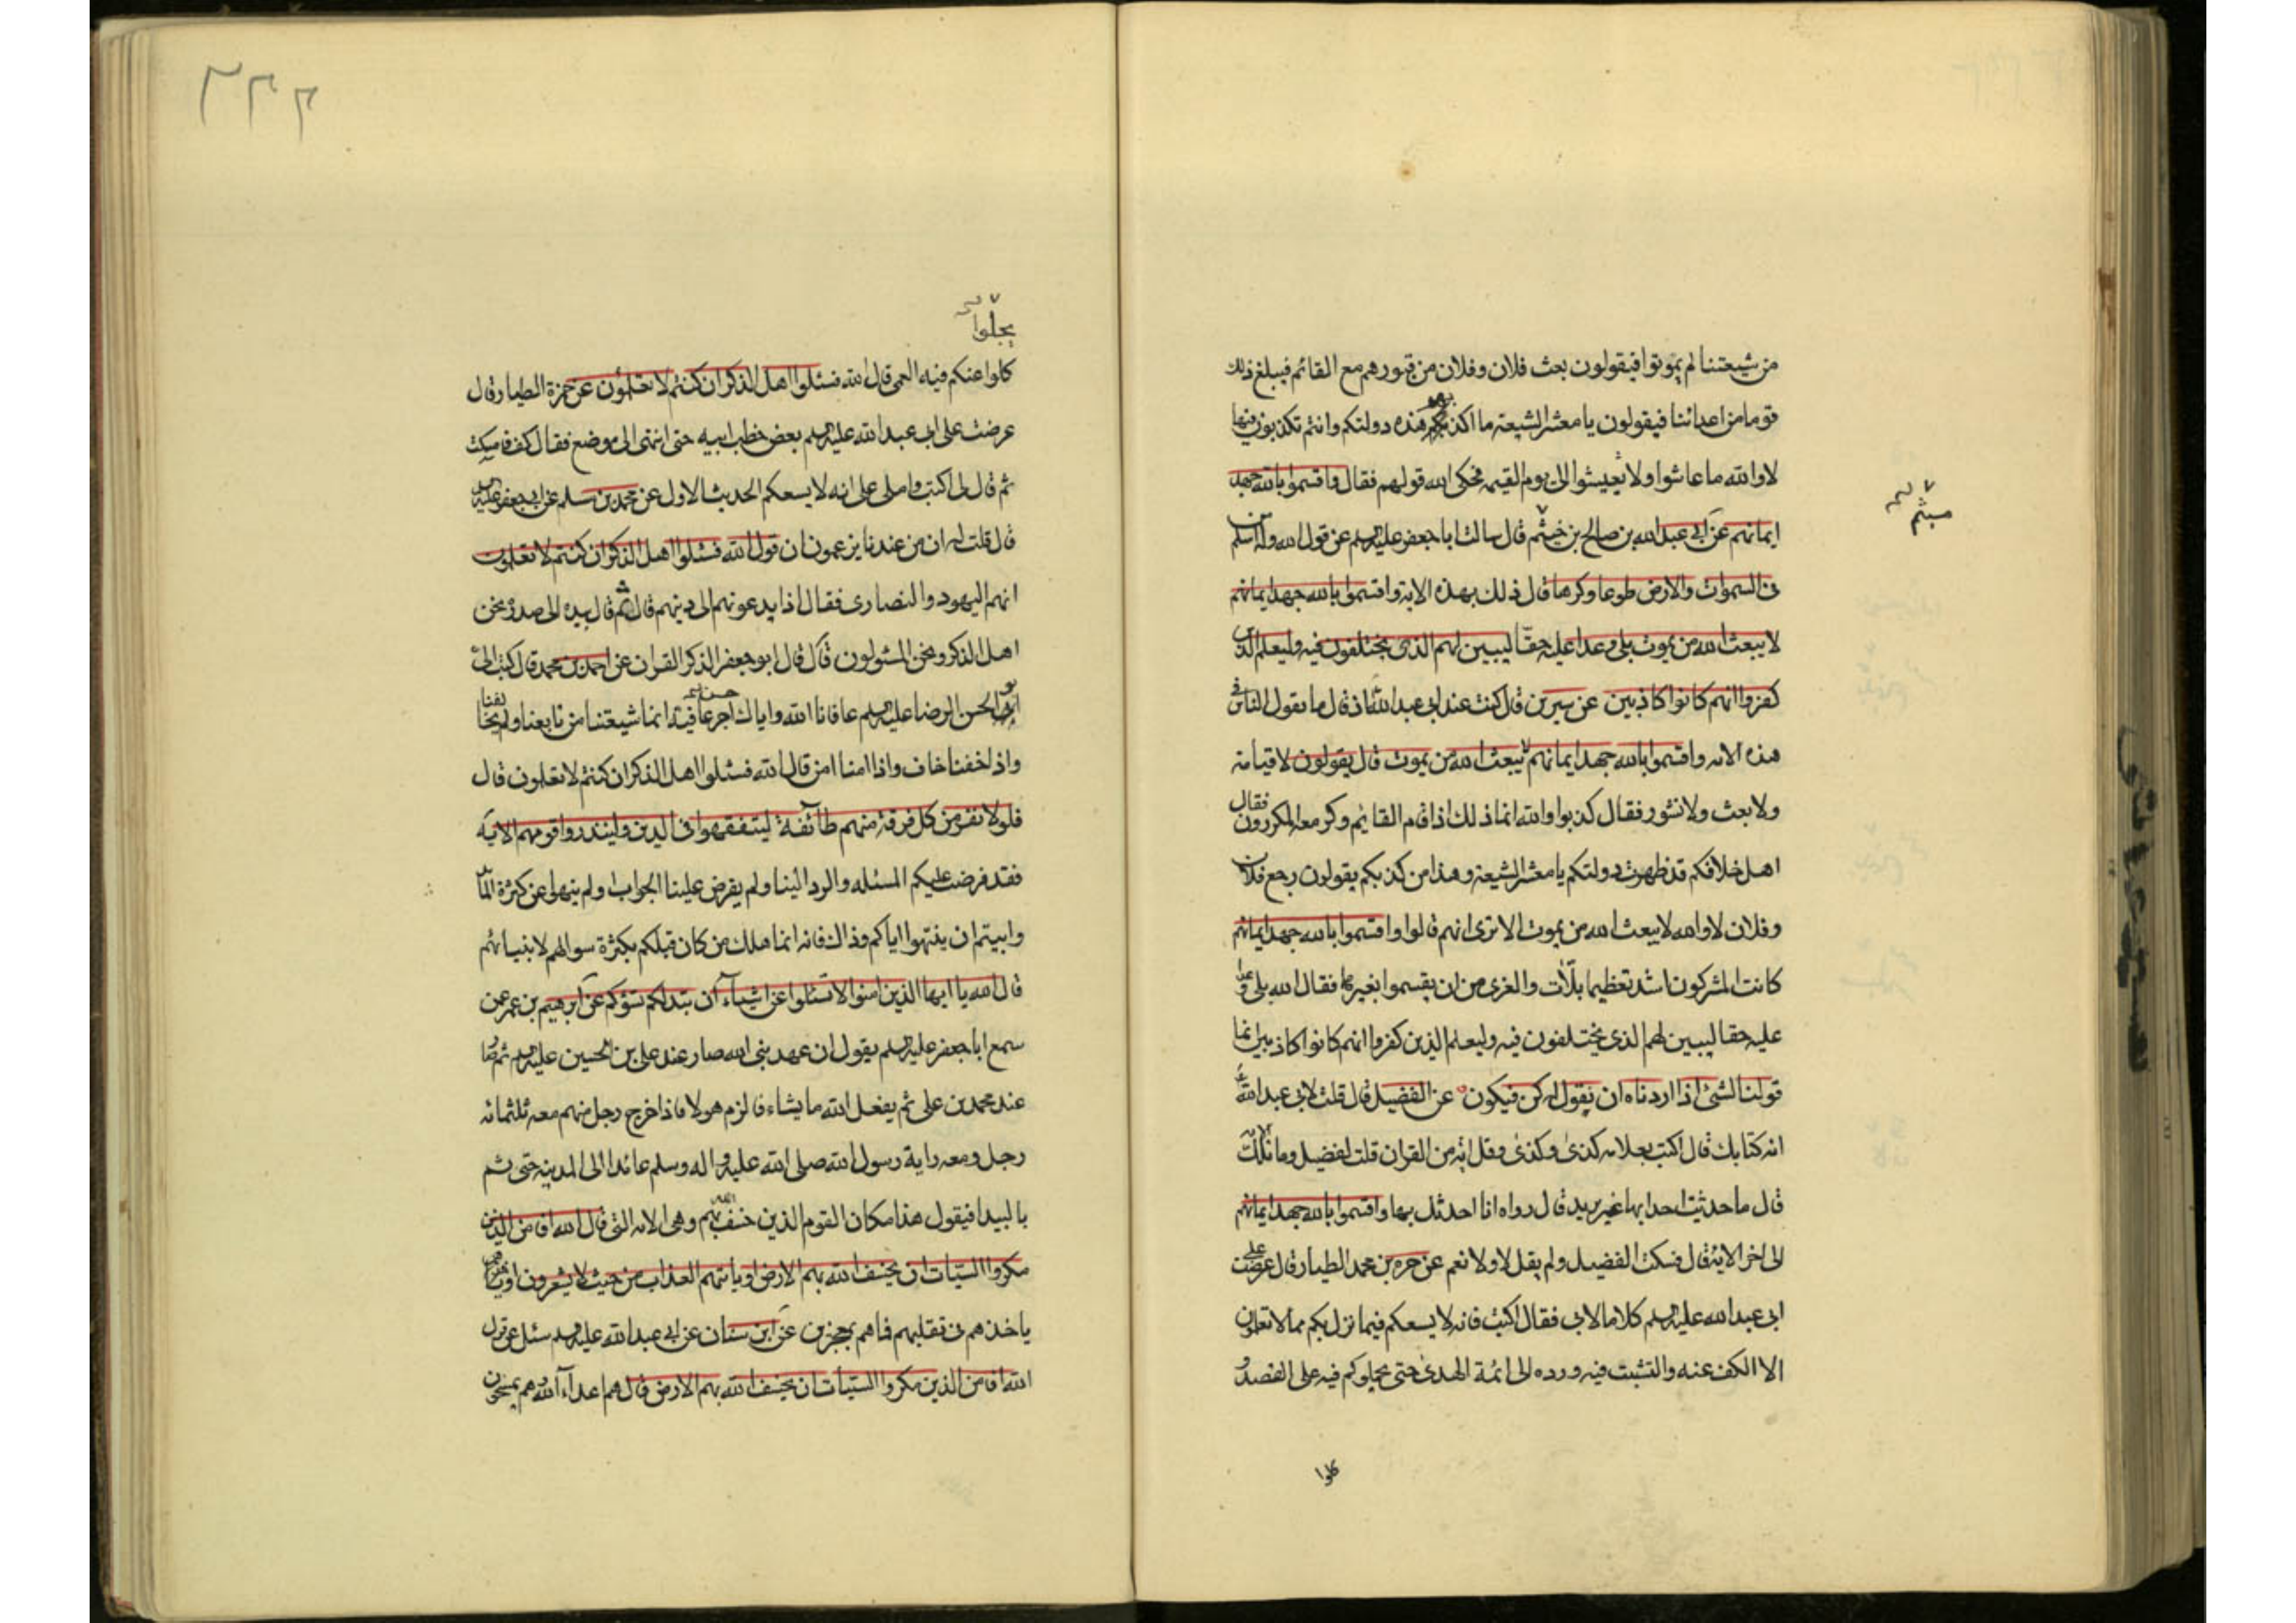 من شيعتنا لم يموتوا فيقولون بعث فلان وفلان من قبورهم مع القائم فيبلغ ذلك
قوما من اعدائنا فيقولون يا معشر الشيعة ما اكذبكم هذه دولتكم وانتم تكذبون فيها
لا والله ما عاشوا ولا يعيشوا الى يوم القيمة فحكى الله قولهم فقال واقسموا بالله جهد
ميثم
ايمانهم عن ابى عبد الله بن صالح بن خيثم قال سالت ابا جعفر عليه السلم عن قول الله وله اسلم من
فى السموات والارض طوعا وكرها قال ذلك بهذه الاية واقسموا بالله جهد ايمانهم
لا يبعث الله من يموت بلى وعدا عليه حقا ليبين لهم الذى يختلفون فيه وليعلم الذين
كفروا انهم كانوا كاذبين عن سيرين قال كنت عند ابى عبد الله اذ قال ما يقول الناس فى
هذه الاية واقسموا بالله جهد ايمانهم لا يبعث الله من يموت قال يقولون لا قيامة
ولا بعث ولا نشور فقال كذبوا والله انما ذلك اذا قام القايم وكر معه المكررون فقال
اهل خلافكم قد ظهرت دولتكم يا معشر الشيعة وهذا من كذبكم يقولون رجع فلان
وفلان لا والله لا يبعث الله من يموت الا ترى انهم قالوا واقسموا بالله جهد ايمانهم
كانت المشركون اشد تعظيما بلّات والعزى من ان يقسموا بغيرها فقال الله بلى وعدا
عليه حقا ليبين لهم الذى يختلفون فيه وليعلم الذين كفروا انهم كانوا كاذبين انما
قولنا لشئ اذا اردناه ان يقول له كن فيكون عن الفضيل قال قلت لابى عبد الله
انه كتابك قال اكتب بعلامة كذى وكذى وقل اية من القران قلت لفضيل وما تلك
قال ما حدثت احدا بها غير بريد قال رواه انا احدثك بها واقسموا بالله جهد ايمانهم
الى اخر الاية قال فسكت الفضيل ولم يقل لا ولا نعم عن حمزة بن محمد الطيار قال عرضت على
ابى عبد الله عليه السلم كلاما لابى فقال اكتب فانه لا يسعكم فيما نزل بكم مما لا تعلمون
الا الكف عنه والتثبت فيه ورده الى ائمة الهدى حتى يحملوكم فيه على القصد و
٣٣٢
يجلوا
كلوا عنكم فيه العمى قال الله فسئلوا اهل الذكر ان كنتم لا تعلمون عن حمزة الطيار قال
عرضت على ابى عبد الله عليه السلم بعض خطب ابيه حتى انتهى الى موضع فقال كف فاسكت
ثم قال لى اكتب واملى على انه لا يسعكم الحديث الاول عن محمد بن مسلم عن ابى جعفر عليه السلم
قال قلت له ان من عندنا يزعمون ان قول الله فسئلوا اهل الذكر ان كنتم لا تعلمون
انهم اليهود والنصارى فقال اذا يدعونهم الى دينهم قال ثم قال بيده الى صدره نحن
اهل الذكر ونحن المسئولون قال قال ابو جعفر الذكر القران عن احمد بن محمد قال كتب الى
ابو الحسن الرضا عليه السلم عافانا الله واياك احسن عافية انما شيعتنا من تابعنا ولم يخالفنا
واذا خفنا خاف واذا امنا امن قال الله فسئلوا اهل الذكر ان كنتم لا تعلمون قال
فلولا نفر من كل فرقة منهم طائفة ليتفقهوا فى الدين ولينذروا قومهم الاية
فقد فرضت عليكم المسئلة والرد الينا ولم يفرض علينا الجواب ولم ينهوا عن كثرة المسائل
وابيتم ان ينتهوا اياكم وذاك فانه انما هلك من كان قبلكم بكثرة سوالهم لانبيائهم
قال الله يا ايها الذين امنوا لا تسئلوا عن اشياء ان تبد لكم تسؤكم عن ابرهيم بن عمر عمن
سمع ابا جعفر عليه السلم يقول ان عهد نبى الله صار عند على بن الحسين عليه السلم ثم صار
عند محمد بن على ثم يفعل الله ما يشاء فالزم هولا فاذا خرج رجل منهم معه ثلثمائة
رجل ومعه راية رسول الله صلى الله عليه واله وسلم عائدا الى المدينة حتى ثم
بالبيدا فيقول هذا مكان القوم الذين خسف الله بهم وهى الاية التى قال الله افامن الذين
مكروا السيئات ان يخسف الله بهم الارض او ياتيهم العذاب من حيث لا يشعرون او
ياخذهم فى تقلبهم فما هم بمعجزين عن ابن سنان عن ابى عبد الله عليه السلم سئل عن قول
الله افامن الذين مكروا السيئات ان يخسف الله بهم الارض قال هم اعداء الله وهم يمسخون
كلوا